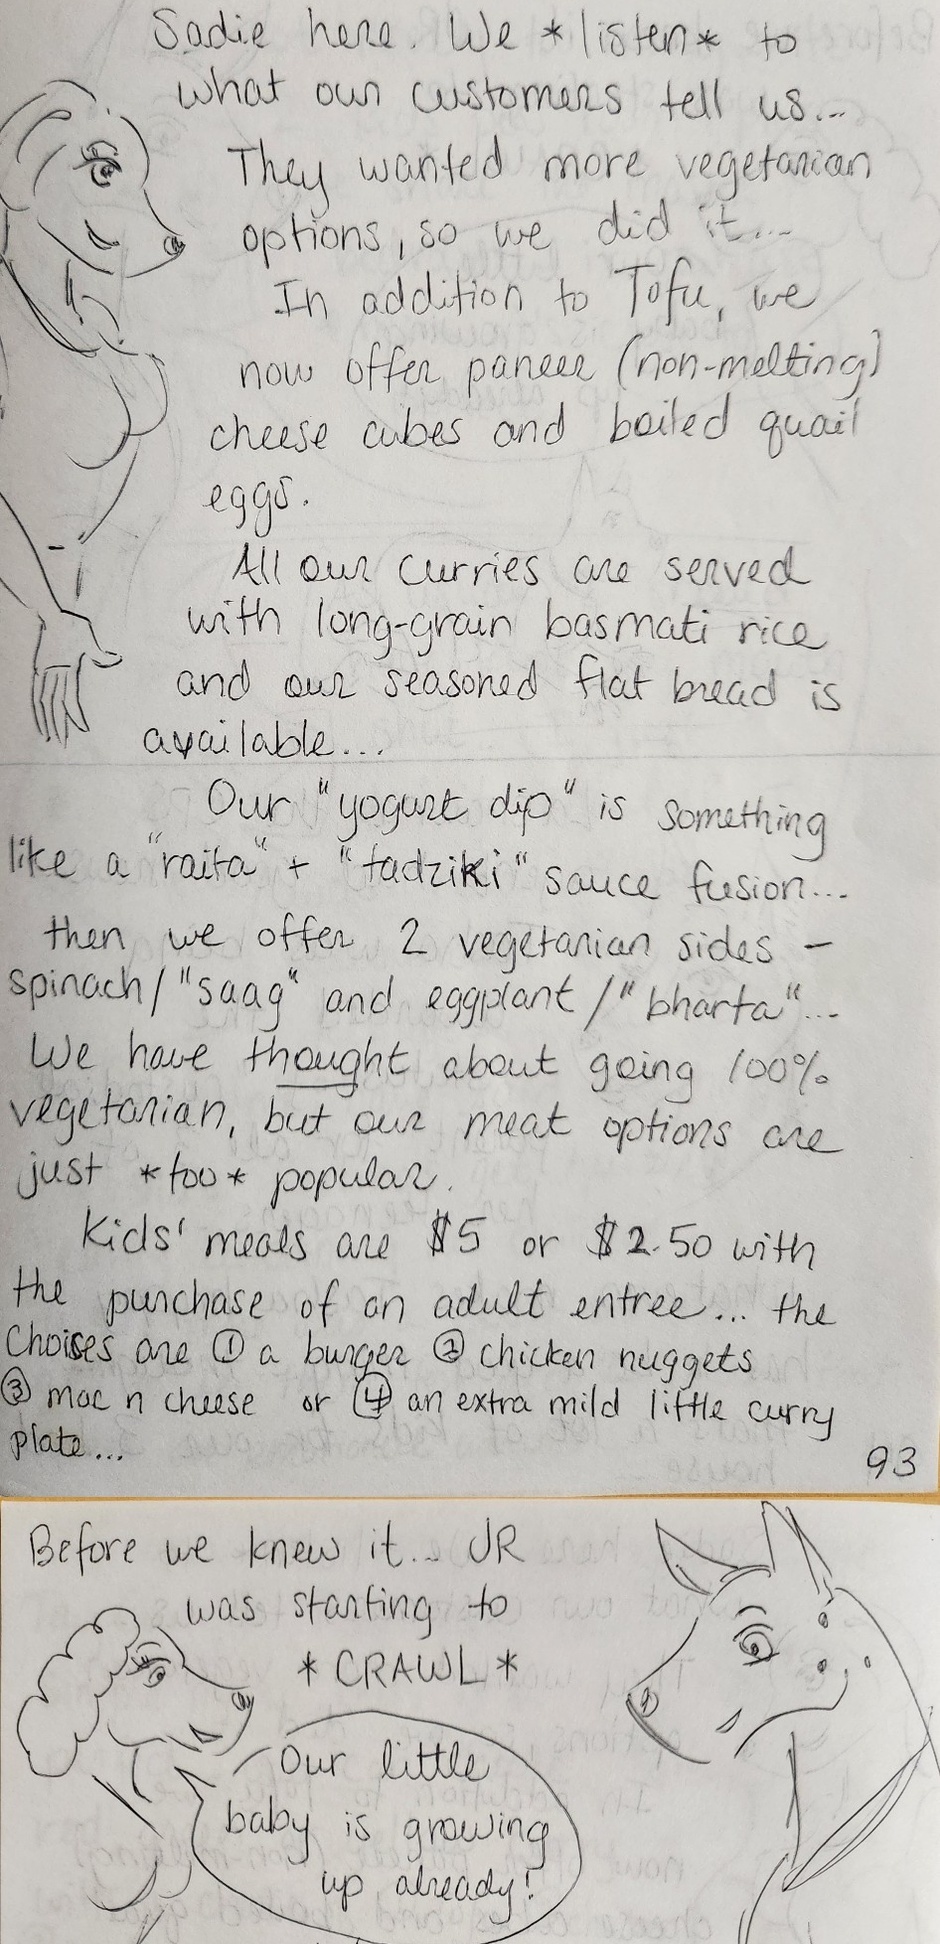 Sadie here. We *listen* to
what our customers tell us...
They wanted more vegetarian
options, so we did it...
In addition to Tofu, we
now offer paneer (non-melting)
cheese cubes and boiled quail
eggs.
All our curries are served
with long-grain basmati rice
and our seasoned flat bread is
available...
Our "yogurt dip" is something
like a "raita" + "tadziki" sauce fusion...
then we offer 2 vegetarian sides -
spinach/"saag" and eggplant/"bharta"...
We have thought about going 100%
vegetarian, but our meat options are
just *too* popular.
Kids' meals are $5 or $2.50 with
the purchase of an adult entree... the
choices are ① a burger ② chicken nuggets
③ mac n cheese or ④ an extra mild little curry
plate...
93
Before we knew it... JR
was starting to
*CRAWL*
Our little
baby is growing
up already!